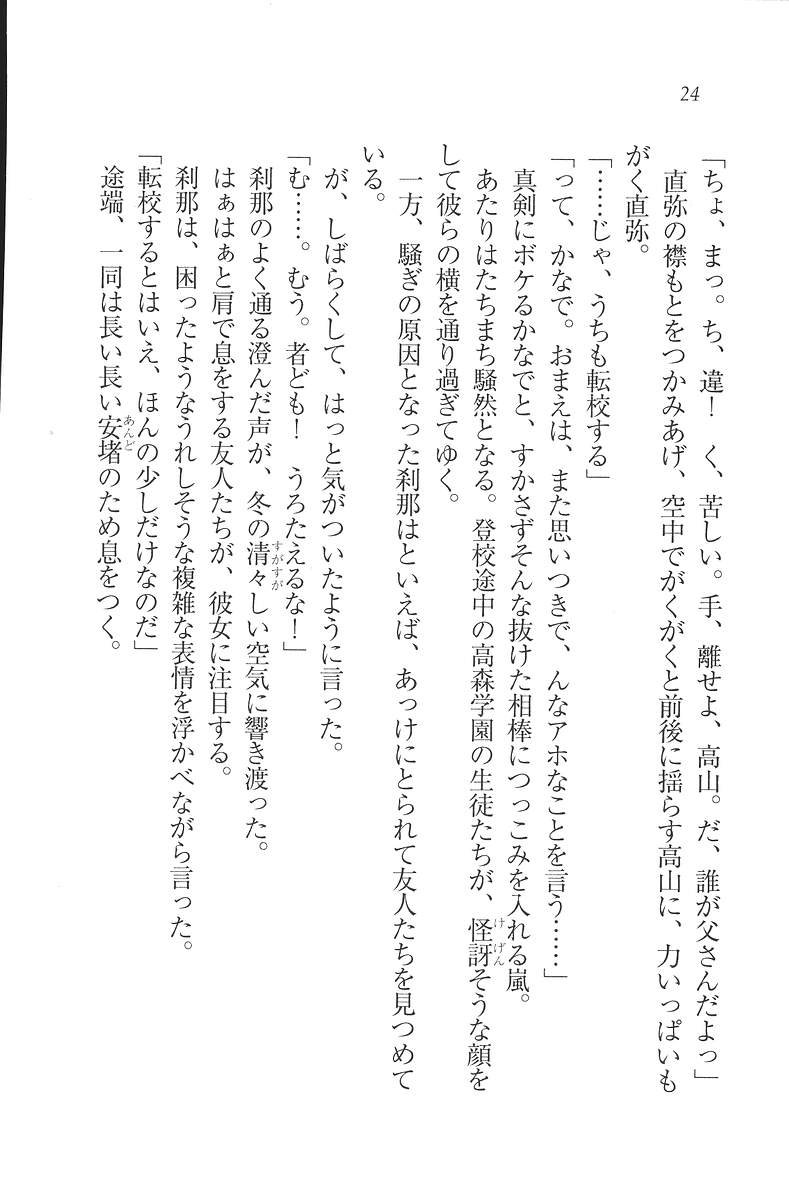 24
「ちょ、まっ。ち、違！　く、苦しい。手、離せよ、高山。だ、誰が父さんだよっ」
直弥の襟もとをつかみあげ、空中でがくがくと前後に揺らす高山に、力いっぱいも
がく直弥。
「……じゃ、うちも転校する」
「って、かなで。おまえは、また思いつきで、んなアホなことを言う……」
真剣にボケるかなでと、すかさずそんな抜けた相棒につっこみを入れる嵐。
あたりはたちまち騒然となる。登校途中の高森学園の生徒たちが、怪訝そうな顔を
して彼らの横を通り過ぎてゆく。
一方、騒ぎの原因となった刹那はといえば、あっけにとられて友人たちを見つめて
いる。
が、しばらくして、はっと気がついたように言った。
「む……。むう。者ども！　うろたえるな！」
刹那のよく通る澄んだ声が、冬の清々しい空気に響き渡った。
はぁはぁと肩で息をする友人たちが、彼女に注目する。
刹那は、困ったようなうれしそうな複雑な表情を浮かべながら言った。
「転校するとはいえ、ほんの少しだけなのだ」
途端、一同は長い長い安堵のため息をつく。
けげん
すがすが
あんど